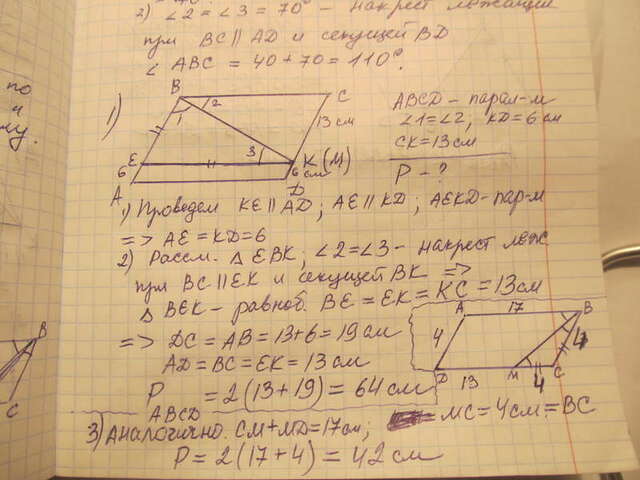 2) ∠2 = ∠3 = 70° - накрест лежащие
при BC || AD и секущей BD
∠ ABC = 40 + 70 = 110°.
по
и
му.
1)
B
C
1
2
13 см
E
3
K (M)
6
6 см
A
D
ABCD - парал-м
∠1 = ∠2, KD = 6 см
CK = 13 см
P - ?
1) Проведем KE || AD; AE || KD; AEKD - пар-м
=> AE = KD = 6
2) Рассм. Δ EBK; ∠2 = ∠3 - накрест леж
при BC || EK и секущей BK =>
Δ BEK - равноб. BE = EK = KC = 13 см
=> DC = AB = 13 + 6 = 19 см
AD = BC = EK = 13 см
P ABCD = 2(13 + 19) = 64 см
A
17
B
4
4
D
13
M
4
C
B
C
3) Аналогично. CM + MD = 17 см; MC = 4 см = BC
P = 2(17 + 4) = 42 см